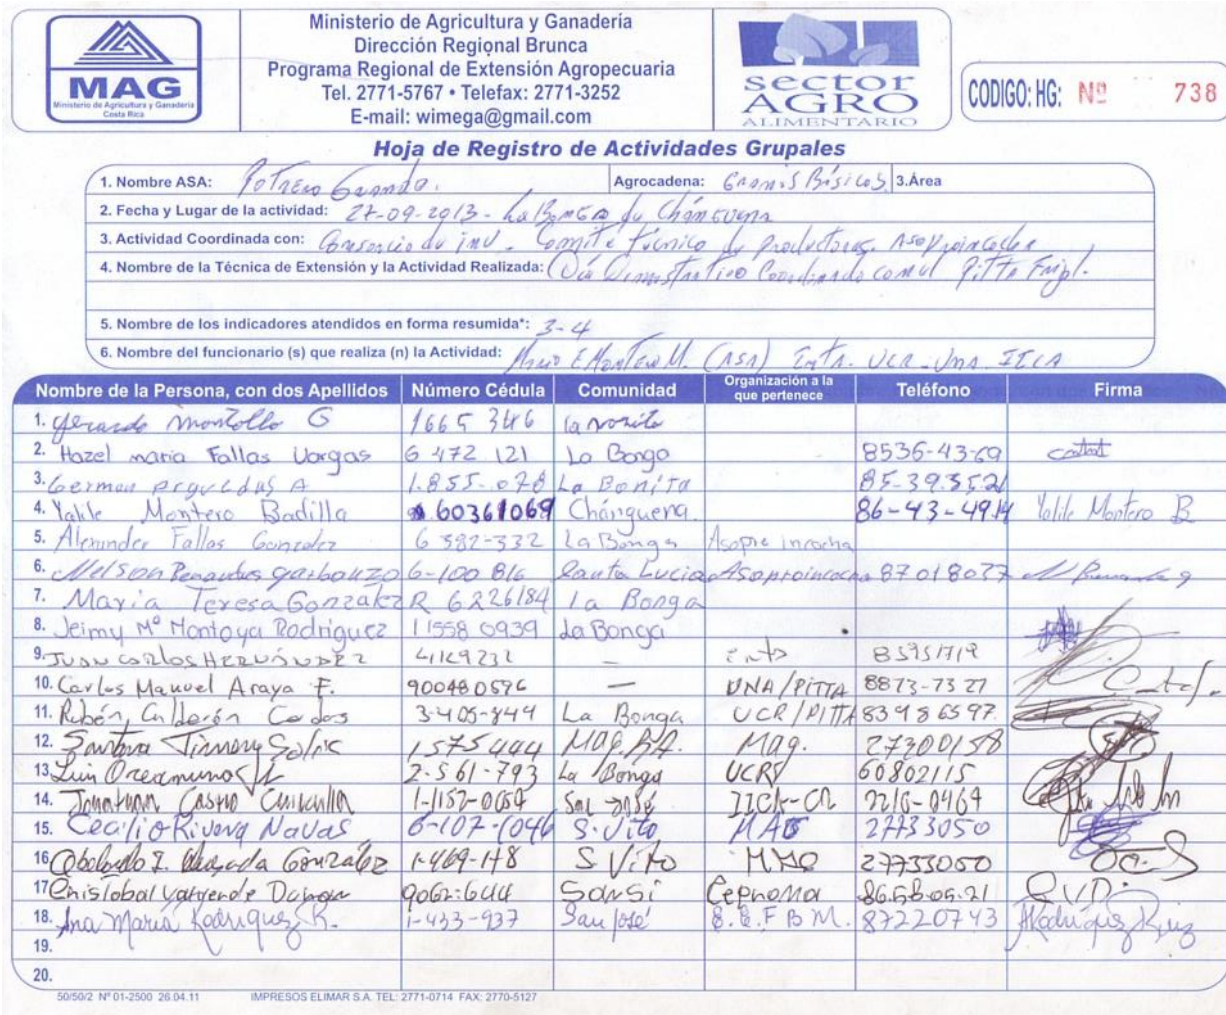 MAG
Ministerio de Agricultura y Ganadería
Costa Rica
Ministerio de Agricultura y Ganadería
Dirección Regional Brunca
Programa Regional de Extensión Agropecuaria
Tel. 2771-5767 • Telefax: 2771-3252
E-mail: wimega@gmail.com
sector
AGRO
ALIMENTARIO
CODIGO: HG: Nº 738
Hoja de Registro de Actividades Grupales
1. Nombre ASA: Potrero Grande. Agrocadena: Granos Básicos 3.Área
2. Fecha y Lugar de la actividad: 27-09-2013 - La Bonga de Chánguena
3. Actividad Coordinada con: Comité técnico de productores. Asoproincocha
4. Nombre de la Técnica de Extensión y la Actividad Realizada: Día Demostrativo Coordinado con el Pitta Frijol.
5. Nombre de los indicadores atendidos en forma resumida*: 3-4
6. Nombre del funcionario (s) que realiza (n) la Actividad: Montero M. (ASA) Inta. UCR-Una. IICA
Nombre de la Persona, con dos Apellidos Número Cédula Comunidad Organización a la que pertenece Teléfono Firma
1. Gerardo G 1665 346
2. Hazel maria Fallas Vargas 6 472 121 La Bonga 8536-43-69
3. German Arguedas A 1-855-078 La Bonita 85-39.35.21
4. Yalile Montero Badilla 60361069 Chánguena. 86-43-4914 Yalile Montero B
5. Alexander Fallas Gonzalez 6 382-332 La Bonga
6. Nelson garbanzo 6-100 816 Santa Lucia Asoproincocha 87018027
7. Maria Teresa Gonzalez R 6226184 La Bonga
8. Jeimy Mª Montoya Rodriguez 11558 0939 La Bonga
9. JUAN CARLOS HERNÁNDEZ 41129232 — inta
10. Carlos Manuel Araya F. 900480596 — UNA/PITTA 8873-7327
11. Rubén Calderón 3-405-844 La Bonga UCR/PITTA 83986597
12. 1575444 MAG.B.A. Mag. 27300158
13. Luis Oreamuno 2-561-793 La Bonga UCR 60802115
14. Jonathan Castro 1-1152-0659 San José IICA-CR 2216-0464
15. Cecilio Rivera Navas 6-107-1046 S. Vito MAG 27733050
16. Gonzalez 1-469-178 S. Vito MAG 27733050
17. 9062:644 Sansi 86.58.05.21
18. Ana María Rodriguez R. 1-433-937 San José E.E.F B M. 87220743 ARodríguez Ruiz
19.
20.
50/50/2 Nº 01-2500 26.04.11 IMPRESOS ELIMAR S.A. TEL: 2771-0714 FAX: 2770-5127